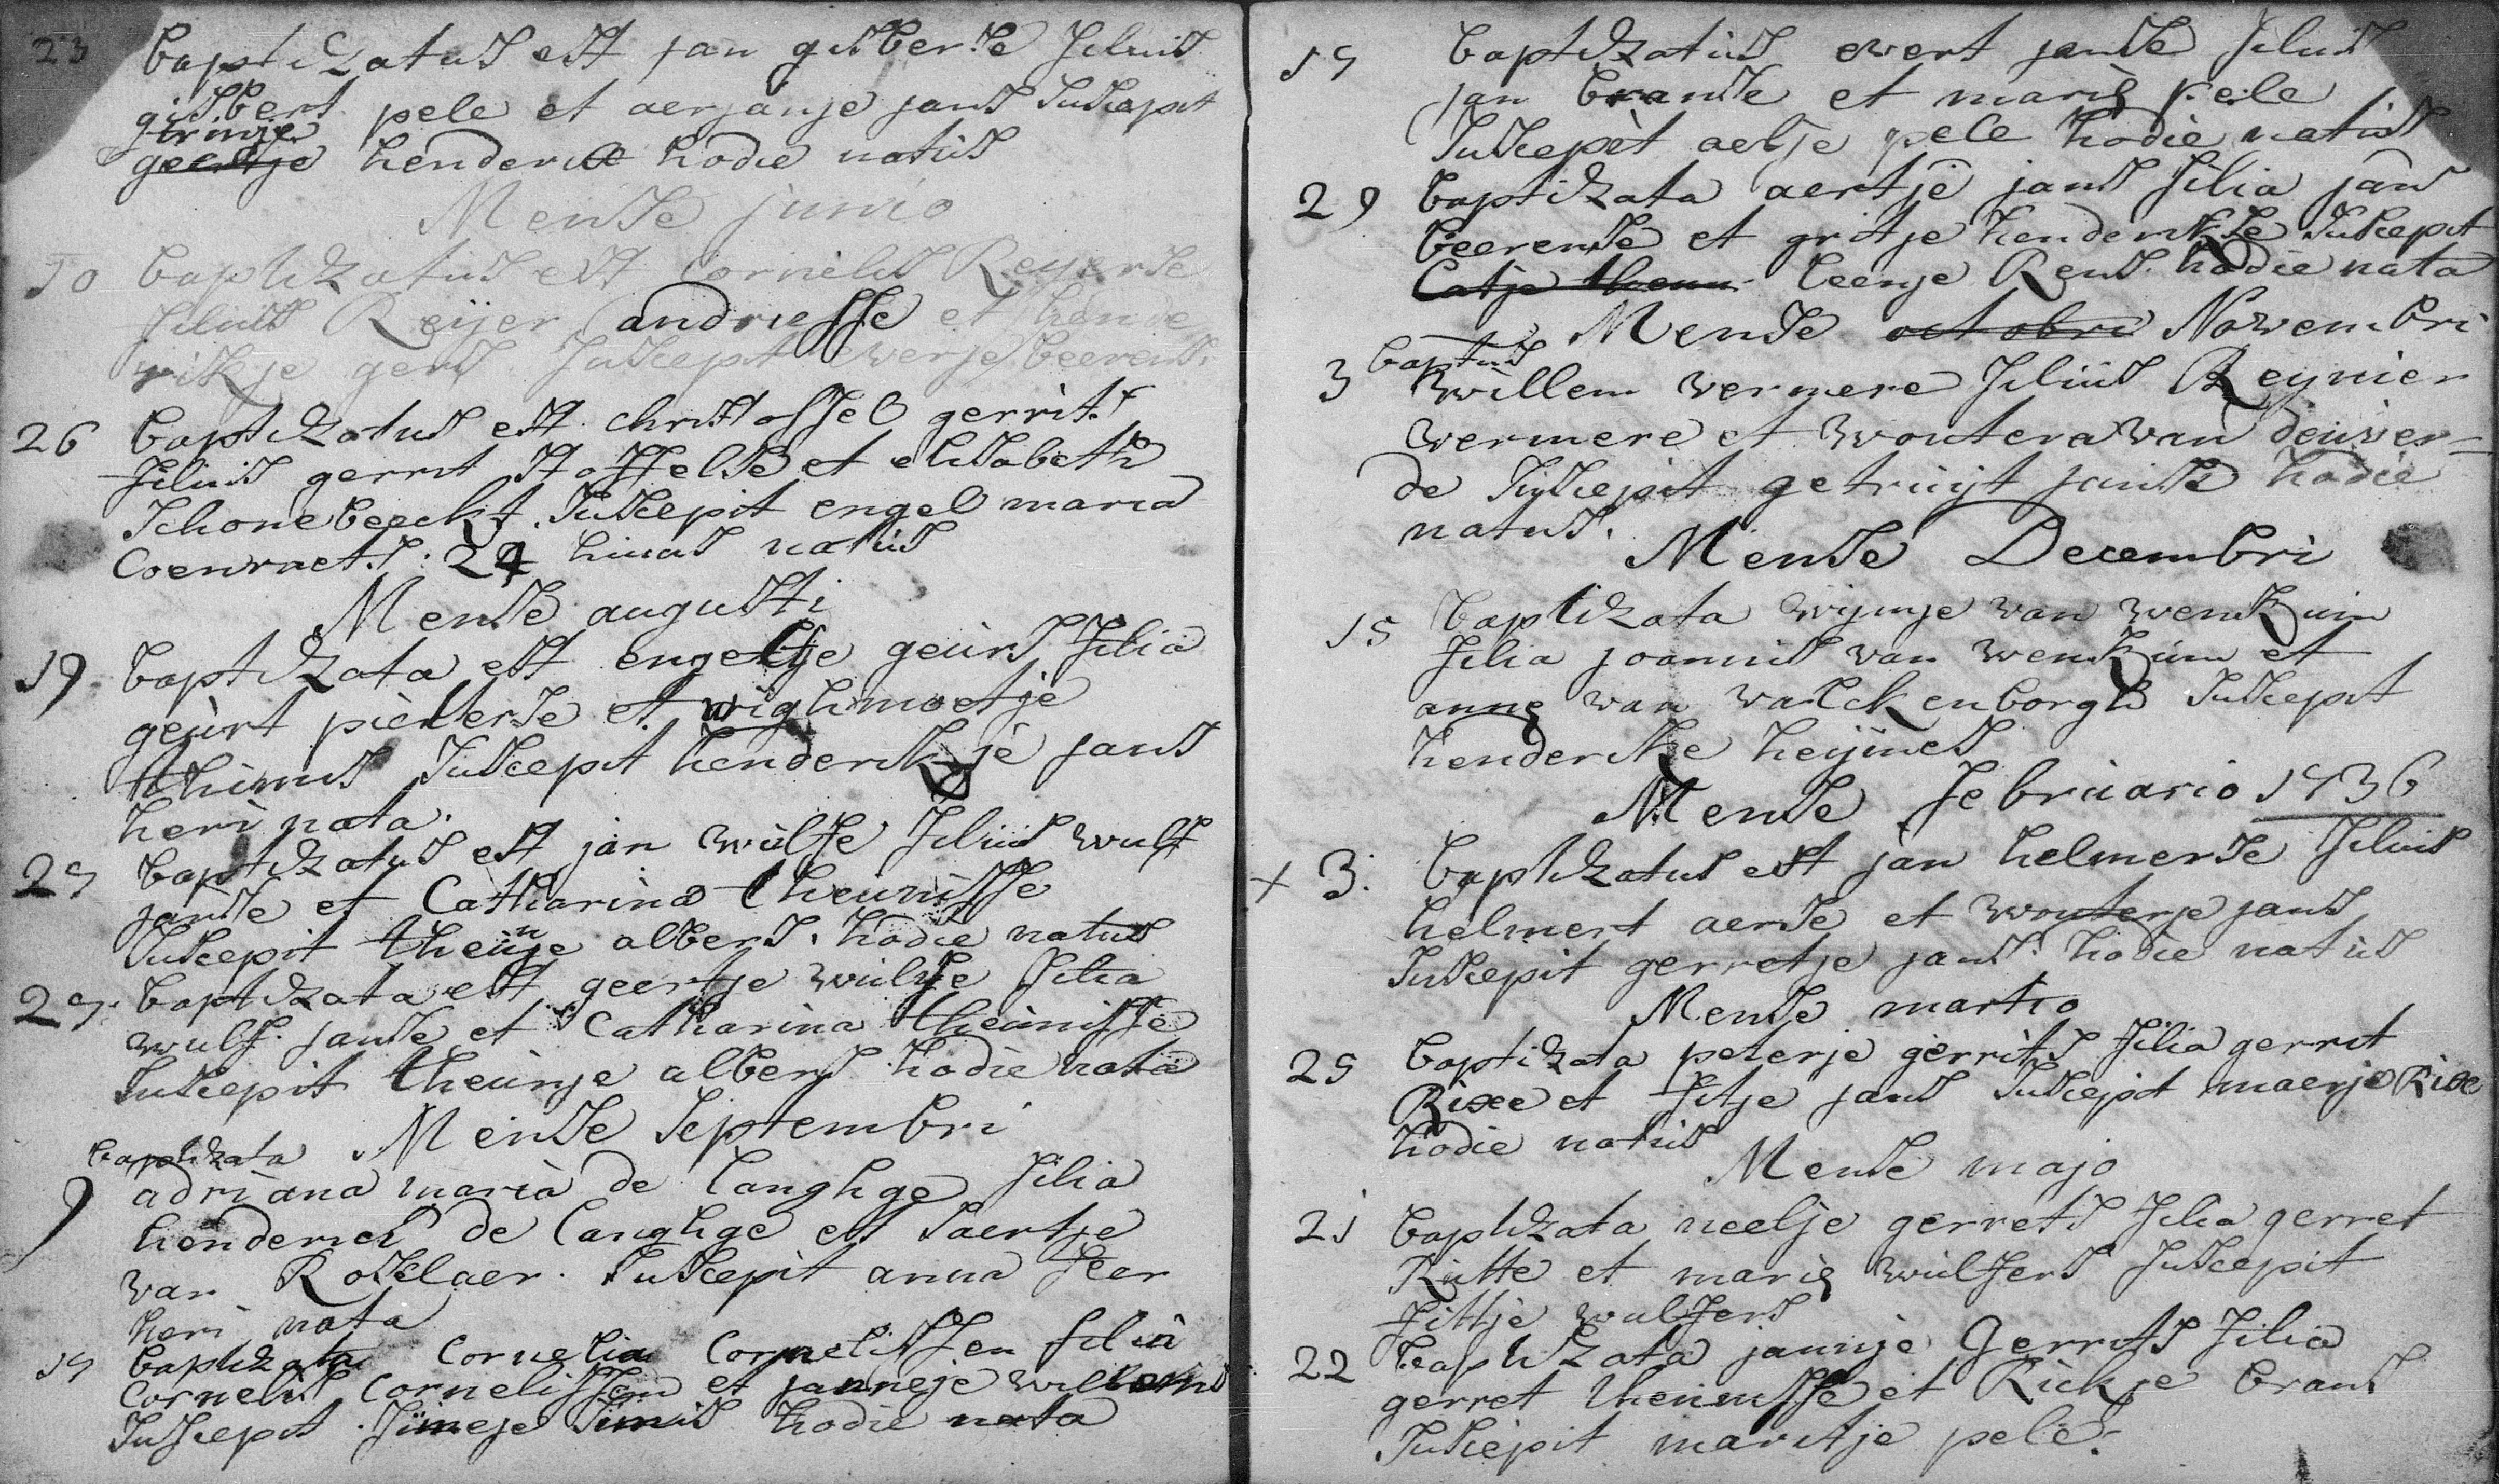 23 baptizatus est jan gisberse filius
gisbert pele et aerjanje jans suscepit
trinje
geertje henderick hodie natus
Mense junio
10 baptizatus est cornelis Reyerse
filius Reijer andriesse et hende
rikje gers suscepit everje beerens
26 baptizatus est christoffel gerrits
filius gerrit stoffelse et elisabeth
schonebeeckx. suscepit engel maria
Coenraets: 24 hujus natus
Mense augusti
19 baptizata est engeltje geurs filia
geurt pieterse et wighmoetje
thimis suscepit henderikje jans
heri nata.
25 baptizatus est jan wulfse filius wulf
janse et Catharina theunisse
n
suscepit theunje albers. hodie natus
25. baptizata est geertje wulfse filia
wulf. janse et Catharina theunisse
suscepit theunje albers hodie nata
Mense septembri
baptizata
9 adriana maria de langhge filia
henderick de langhge et saertje
van Roselaer. suscepit anna
heri nata
15 baptizata Cornelia Cornelissen filia
Cornelis Cornelissen et janneje willems
suscepit hodie nata
15 baptizatus evert janse filius
jan branse et marie pele
suscepit aeltje pele hodie natus
29 baptizata aertje jans filia jan
beerense et gritje henderikse suscepit
Catje beenje Rens. hodie nata
Mense octobri Novembri
baptus
3 willem vermere filius Reynier
vermere et woutera van deuver=
de suscepit getruijt janse hodie
natus.
Mense Decembri
15 baptizata wijmje van wenkum
filia joannis van wenkum et
anne van valckenborgh suscepit
henderikje heijmes
Mense februario 1736
+ 3. baptizatus est jan helmerse filius
helmert aerse et wouterje jans
suscepit gerretje jans. hodie natus
Mense martio
25 baptizata peterje gerrits filia gerrit
Rixe et fitje jans suscepit maerje Rixe
hodie natus
Mense majo
21 baptizata neelje gerrets filia gerret
Rutte et marie wulfers suscepit
fittje wulfers
22 baptizata jannje Gerrets filia
gerret theunisse et Rickje brans
suscepit maritje pele.